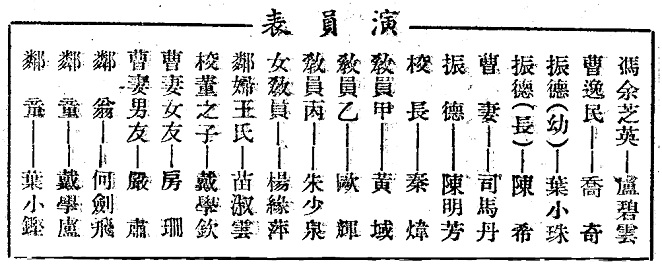 表員演
馮余芝英——盧碧雲
曹逸民——喬奇
振德(幼)——葉小珠
振德(長)——陳希
曹妻——司馬丹
振德——陳明芳
校長——秦煒
教員甲——黃域
教員乙——歐輝
教員丙——朱少泉
女教員——楊緣萍
鄰婦王氏——苗淑雲
校董之子——戴學欽
曹妻女友——房珊
曹妻男友——嚴肅
鄰翁——何劍飛
鄰童——戴學廬
鄰童——葉小鏗